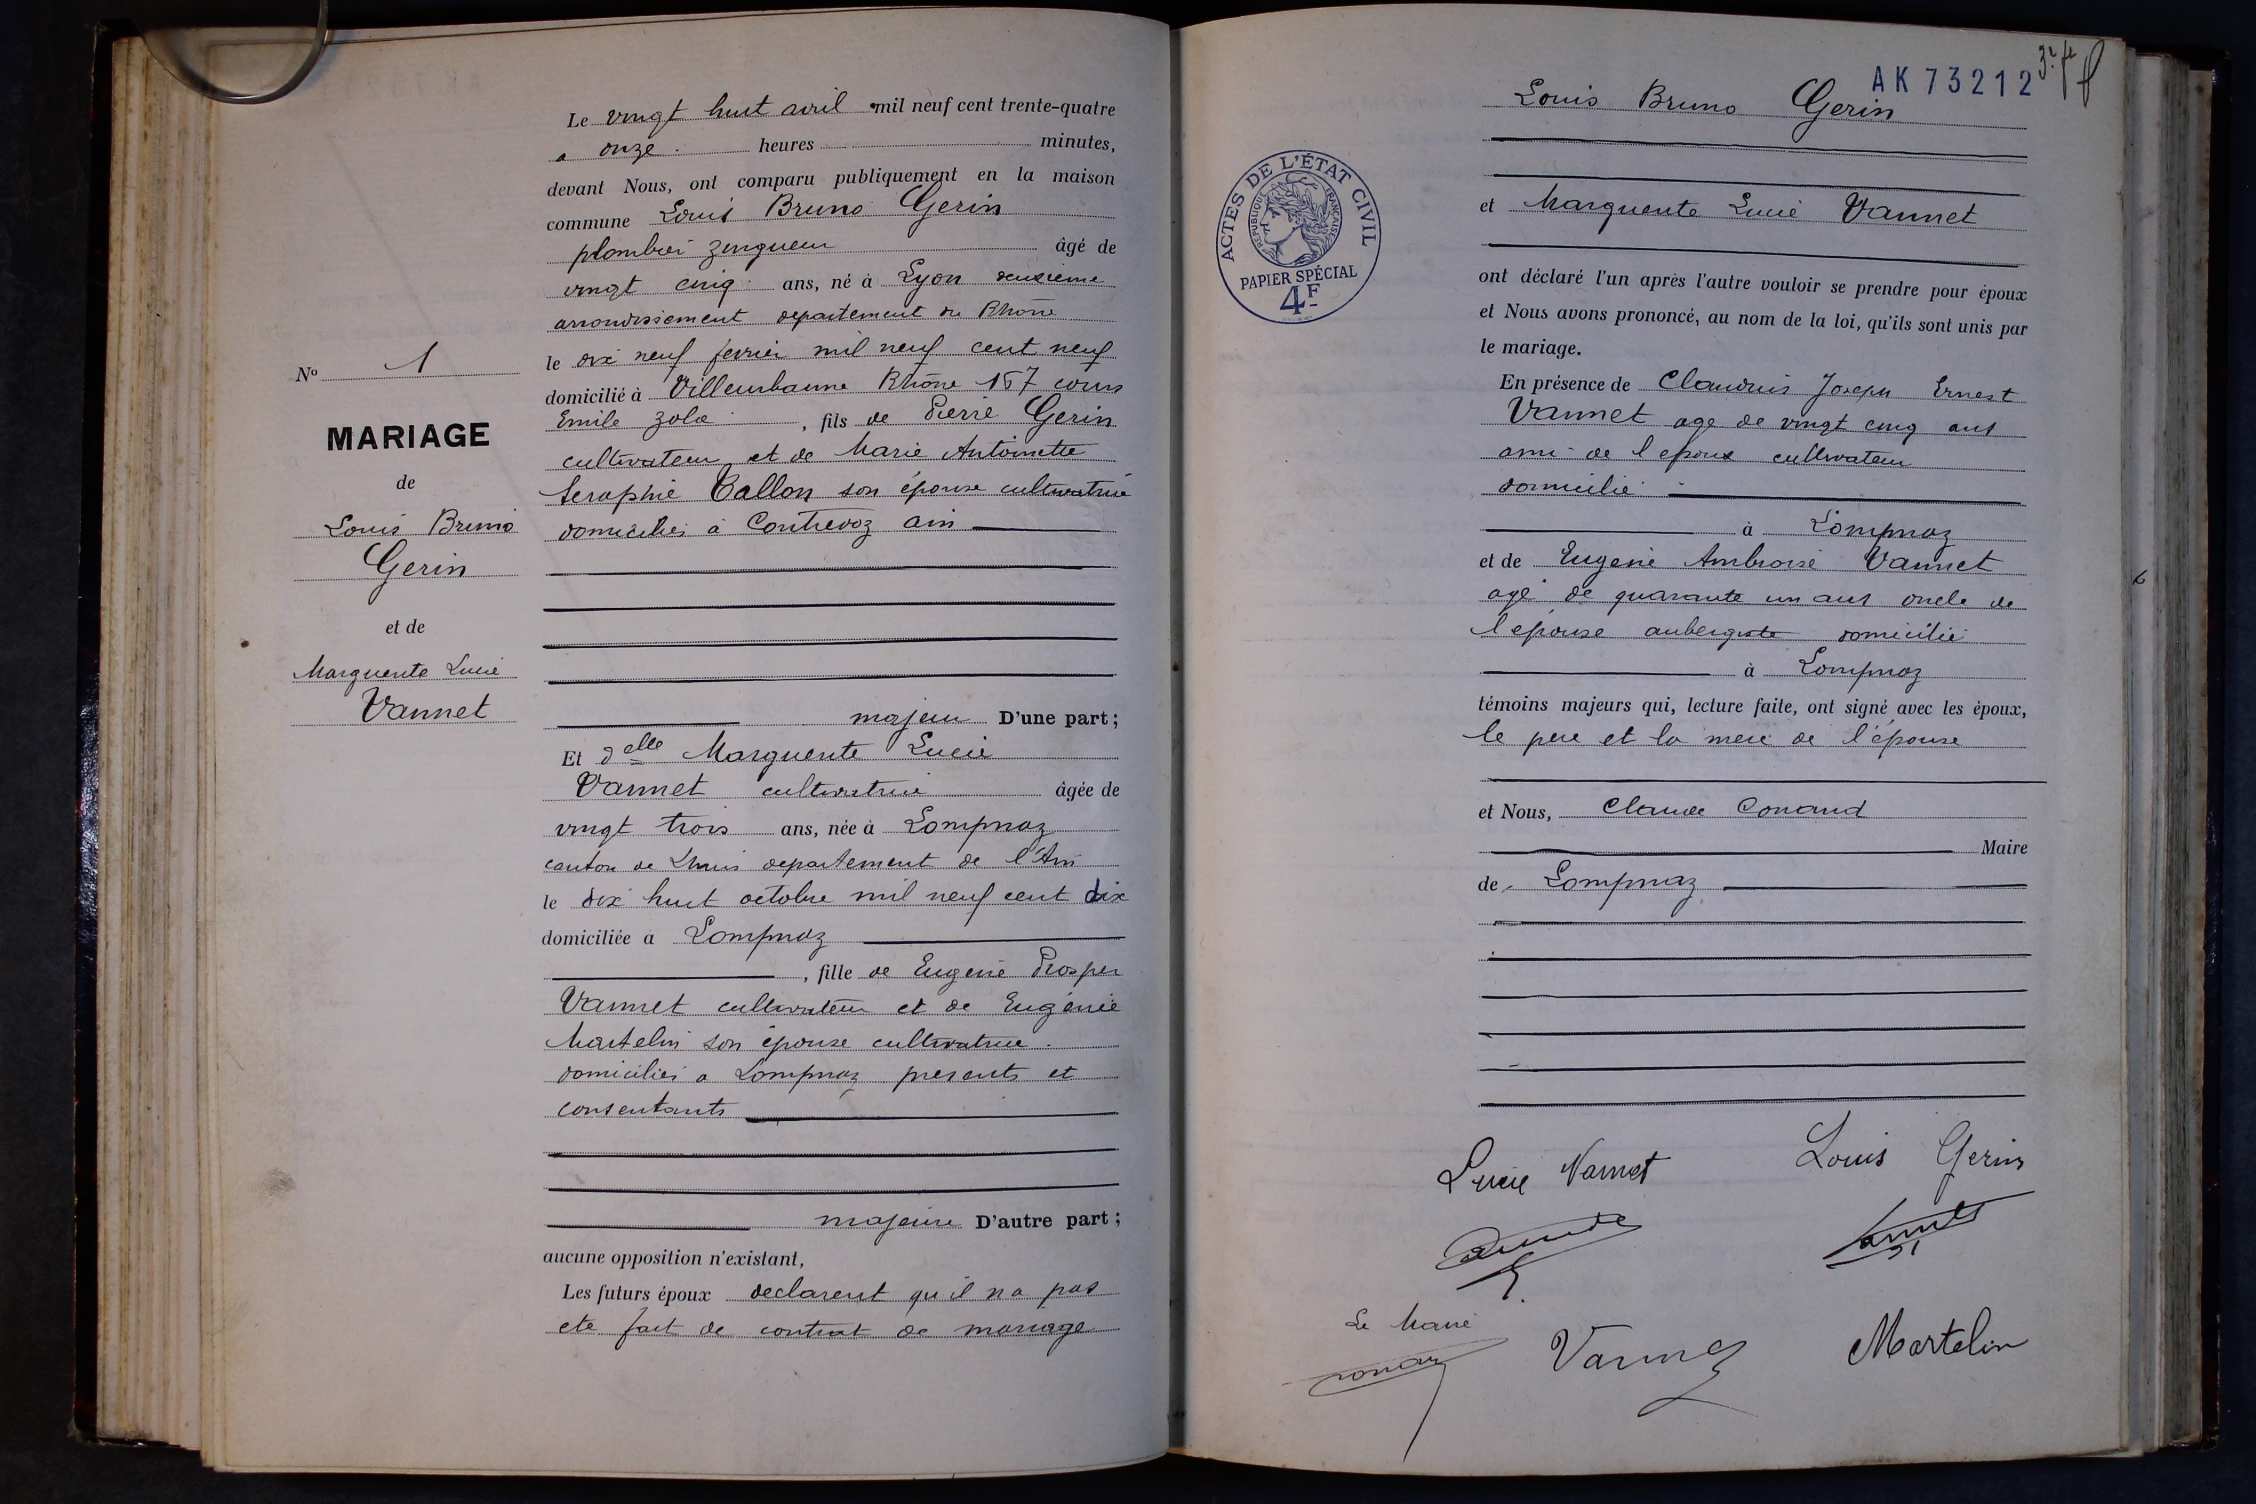 Nº 1
MARIAGE
de
Louis Bruno
Gerin
et de
Marguerite Lucie
Vannet
Le vingt huit avril mil neuf cent trente-quatre
a onze heures minutes,
devant Nous, ont comparu publiquement en la maison
commune Louis Bruno Gerin
plombier zingueur âgé de
vingt cinq ans, né à Lyon deuxieme
arrondissement departement du Rhône
le dix neuf fevrier mil neuf cent neuf
domicilié à Villeurbanne Rhône 157 cours
Emile Zola, fils de Pierre Gerin
cultivateur et de Marie Antoinette
Seraphie Callon son épouse cultivatrice
domiciliés à Contrevoz Ain
majeur D'une part;
Et delle Marguerite Lucie
Vannet cultivatrice âgée de
vingt trois ans, née à Lompnaz
canton de Lhuis departement de l'Ain
le dix huit octobre mil neuf cent dix
domiciliée a Lompnaz
, fille de Eugene Prosper
Vannet cultivateur et de Eugénie
Martelin son épouse cultivatrice
domiciliés a Lompnaz presents et
consentants
majeure D'autre part;
aucune opposition n'existant,
Les futurs époux declarent qu'il n a pas
ete fait de contrat de mariage
AK 73212
Louis Bruno Gerin
et Marguerite Lucie Vannet
ACTES DE L'ÉTAT CIVIL
RÉPUBLIQUE FRANÇAISE
PAPIER SPÉCIAL
4F
ont déclaré l'un après l'autre vouloir se prendre pour époux
et Nous avons prononcé, au nom de la loi, qu'ils sont unis par
le mariage.
En présence de Claudius Joseph Ernest
Vannet age de vingt cinq ans
ami de l epoux cultivateur
domicilié
à Lompnaz
et de Eugene Ambroise Vannet
agé de quarante un ans oncle de
l'epouse aubergiste domicilié
à Lompnaz
témoins majeurs qui, lecture faite, ont signé avec les époux,
le pere et la mere de l'épouse
et Nous, Claude Conand
Maire
de Lompnaz
Lucie Vannet Louis Gerin
Le Maire
Conand Vannet Martelin